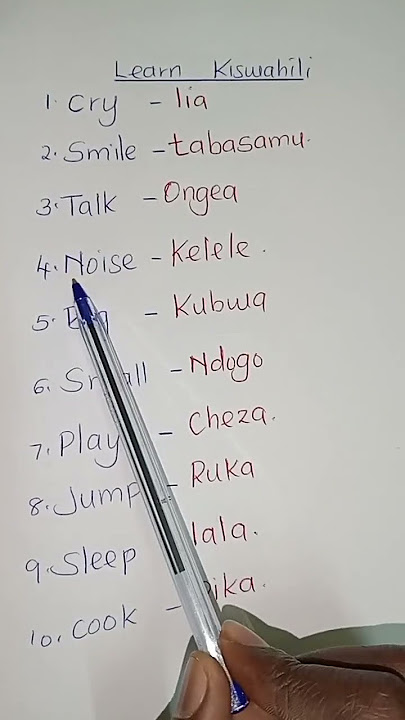 Learn Kiswahili
1. Cry - lia
2. Smile - tabasamu.
3. Talk - Ongea
4. Noise - Kelele.
5. - Kubwa
6. Small - Ndogo
7. Play - Cheza.
8. Jump - Ruka
9. Sleep lala.
10. cook - Pika.